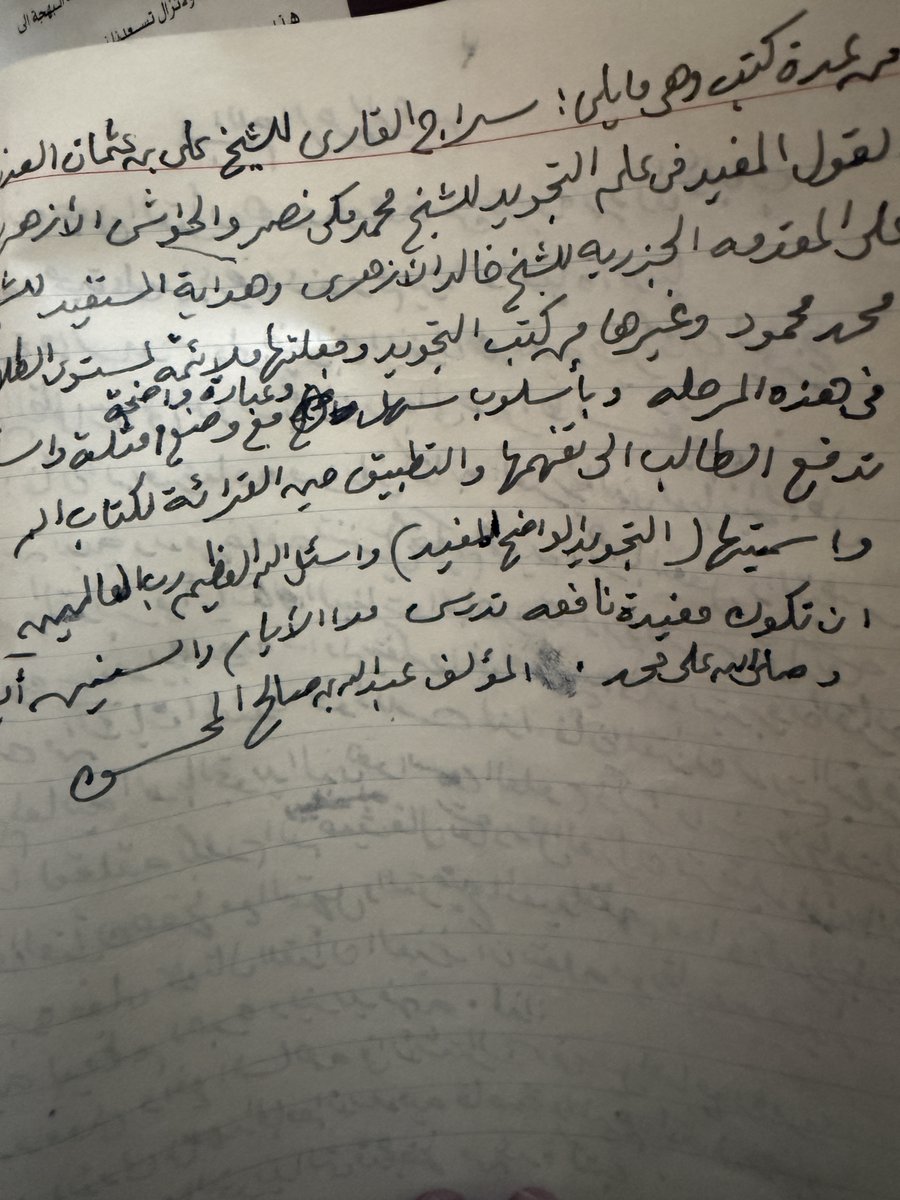 البهجة الى
ولاتزال تسعد
هذا
من عدة كتب وهى مايلى: سراج القارى للشيخ على بن عثمان العذ
لقول المفيد فى علم التجويد للشيخ محمد مكى نصر والحواشى الأزهر
على المقدمه الجزريه للشيخ خالد الأزهرى وهداية المستفيد للش
محمد محمود وغيرها من كتب التجويد وجعلتها ملائمة لمستوى الطلا
فى هذه المرحله وبأسلوب سهل وعبارة واضحة مع وضع امثلة واس
تدفع الطالب الى تفهمها والتطبيق حين القرائة لكتاب الله
واسميتها (التجويد الواضح المفيد) واسئل الله العظيم رب العالمين
ان تكون مفيدة نافعه تدرس مدا الأيام والسنين
وصلى الله على محمد المؤلف عبدالله بن صالح